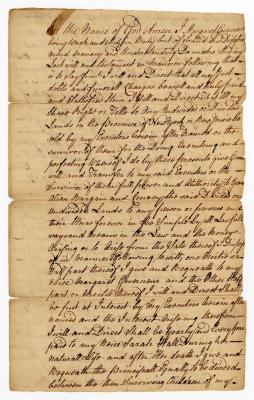 In the Name of God Amen I Margaret
being Weak and Sickly in Body but of Sound and Disposing
mind memory and Understanding Do make this my
Last will and Testament in Manner following that
is to Say first I will and Direct that all my Just
debts and funerall Charges be well and truly paid
and Sattisfied Item I Will and Direct that all my
Share Right or Title to any undivided or Divided
Lands in the Province of New York or New Jersey be
Sold by my Executors hereinafter Named or the
Survivor of them for the Doing Executing and
perfecting Whereof I do by these presents give Grant
will and Transfer to my said Executors or the
Survivor of them full power and Authority to Grant
Alien Bargain and Convey the said Divided or
Undivided Lands to any person or persons and
their Heirs forever in Fee Simple by all Lawfull
ways and means in the Law and the Moneys
Arising or to Arise from the Sale thereof I Dispose
of in manner following to wit, one Moiety or
Half part thereof I give and Bequeath to my
niece Margaret and the other Half
part or Moiety thereof I will and Direct Shall
be put at Interest by my Executors herein after
named and the Interest Arising therefrom
I will and Direct Shall be yearly and every Year
paid to my Niece Sarah Hall during her
naturall Life and after Her Death I give and
Bequeath the principal Equally to be divided
between the then Surviving Children of my